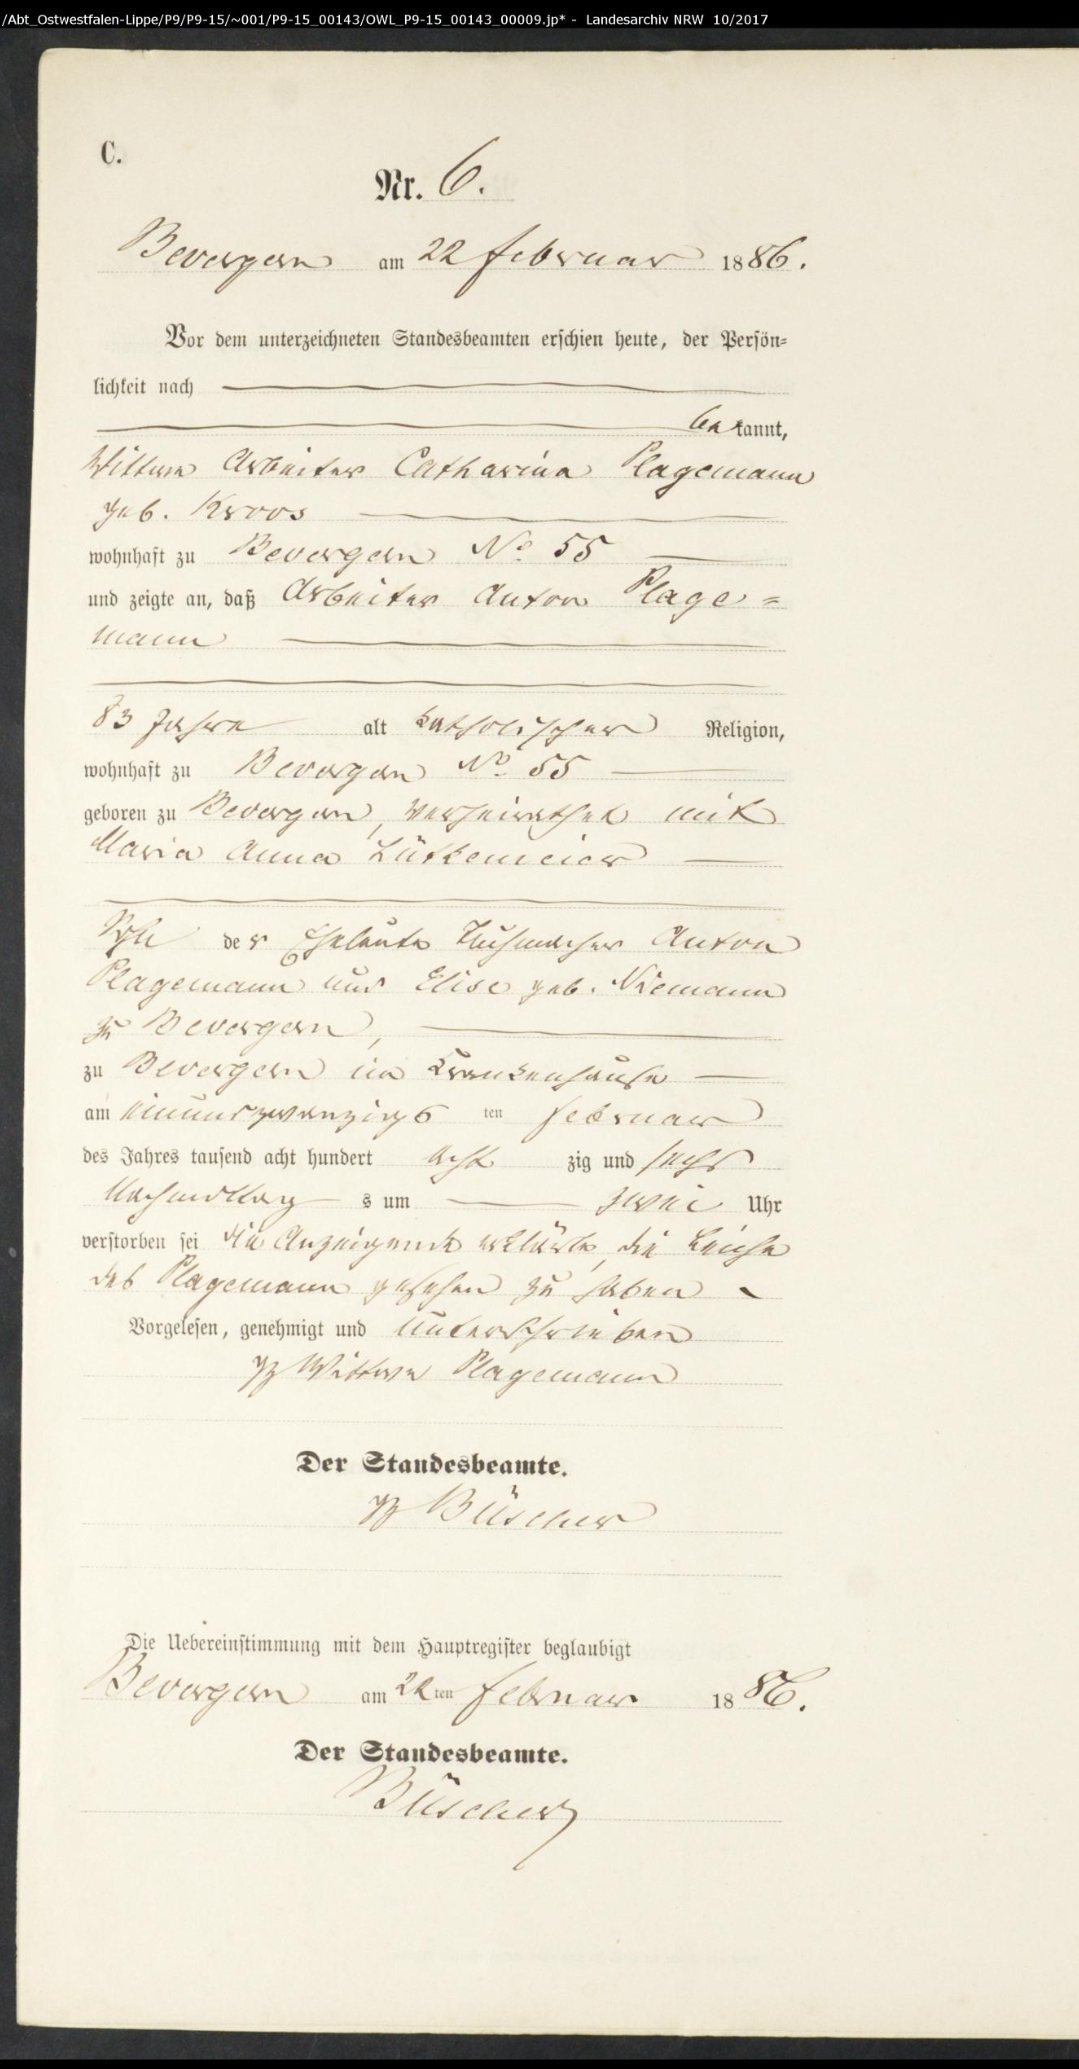 /Abt_Ostwestfalen-Lippe/P9/P9-15/~001/P9-15_00143/OWL_P9-15_00143_00009.jp* - Landesarchiv NRW 10/2017
C.
Nr. 6.
Bevergern am 22 Februar 1886.
Vor dem unterzeichneten Standesbeamten erschien heute, der Persön-
lichkeit nach
bekannt,
Wittwe Arbeiter Catharina Plagemann
geb. Kroos
wohnhaft zu Bevergern No 55
und zeigte an, daß Arbeiter Anton Plage=
mann
83 Jahre alt katholischer Religion,
wohnhaft zu Bevergern No 55
geboren zu Bevergern, verheirathet mit
Maria Anna Lütkemeier
Sohn der Eheleute Tuchmacher Anton
Plagemann und Elise geb. Niemann
zu Bevergern,
zu Bevergern im Krankenhause
am einundzwanzigsten Februar
des Jahres tausend acht hundert acht zig und sechs
Nachmittag s um zwei Uhr
verstorben sei die Anzeigende erklärte, die Leiche
des Plagemann gesehen zu haben
Vorgelesen, genehmigt und unterschrieben
gz Wittwe Plagemann
Der Standesbeamte.
gz Büscher
Die Uebereinstimmung mit dem Hauptregister beglaubigt
Bevergern am 22ten Februar 1886.
Der Standesbeamte.
Büscher